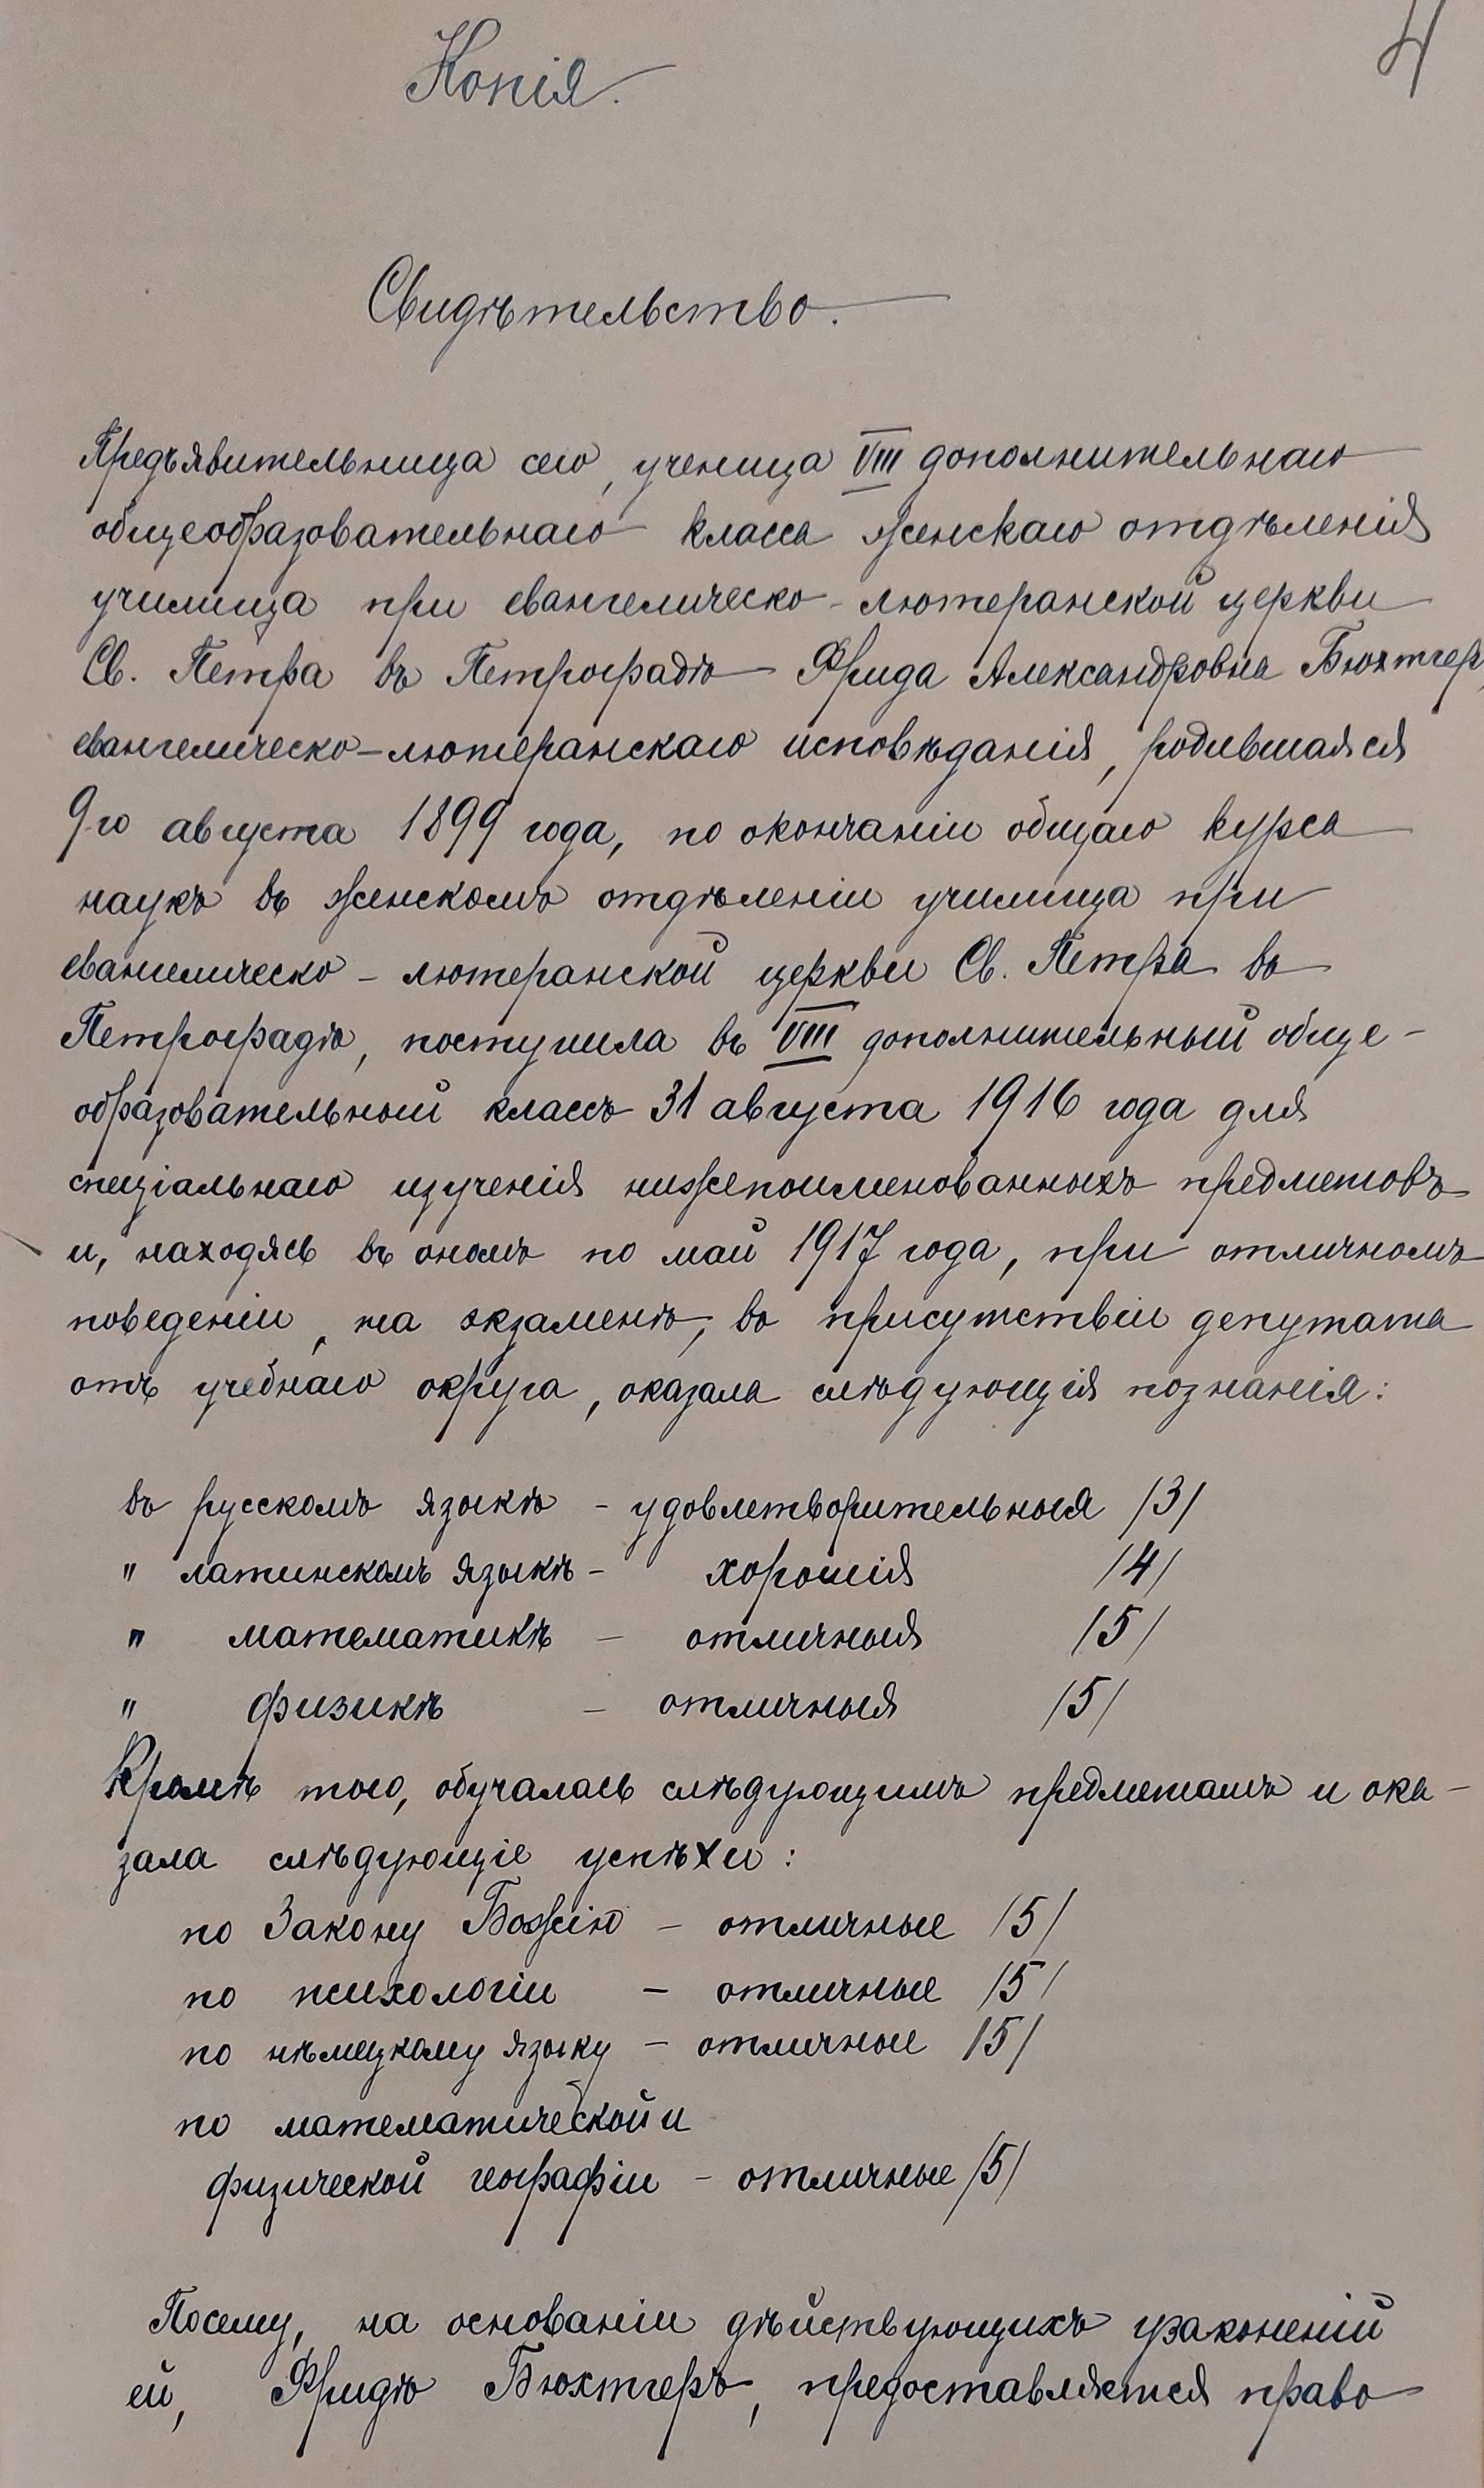 Копія.
4
Свидѣтельство.
Предъявительница сего, ученица VIII дополнительнаго
общеобразовательнаго класса женскаго отдѣленія
училища при евангелическо-лютеранской церкви
Св. Петра въ Петроградѣ Фрида Александровна Бюхтгер,
евангелическо-лютеранскаго исповѣданія, родившаяся
9-го августа 1899 года, по окончаніи общаго курса
наукъ въ женскомъ отдѣленіи училища при
евангелическо-лютеранской церкви Св. Петра въ
Петроградѣ, поступила въ VIII дополнительный обще-
образовательный классъ 31 августа 1916 года для
спеціальнаго изученія нижепоименованныхъ предметовъ
и, находясь въ ономъ по май 1917 года, при отличномъ
поведеніи, на экзаменѣ, въ присутствіи депутата
отъ учебнаго округа, оказала слѣдующія познанія:
въ русскомъ языкѣ - удовлетворительныя /3/
" латинскомъ языкѣ - хорошія /4/
" математикѣ - отличныя /5/
" физикѣ - отличныя /5/
Кромѣ того, обучалась слѣдующимъ предметамъ и ока-
зала слѣдующіе успѣхи:
по Закону Божію - отличные /5/
по психологіи - отличные /5/
по нѣмецкому языку - отличные /5/
по математической и
физической географіи - отличные /5/
Посему, на основаніи дѣйствующихъ узаконеній
ей, Фридѣ Бюхтгеръ, предоставляется право